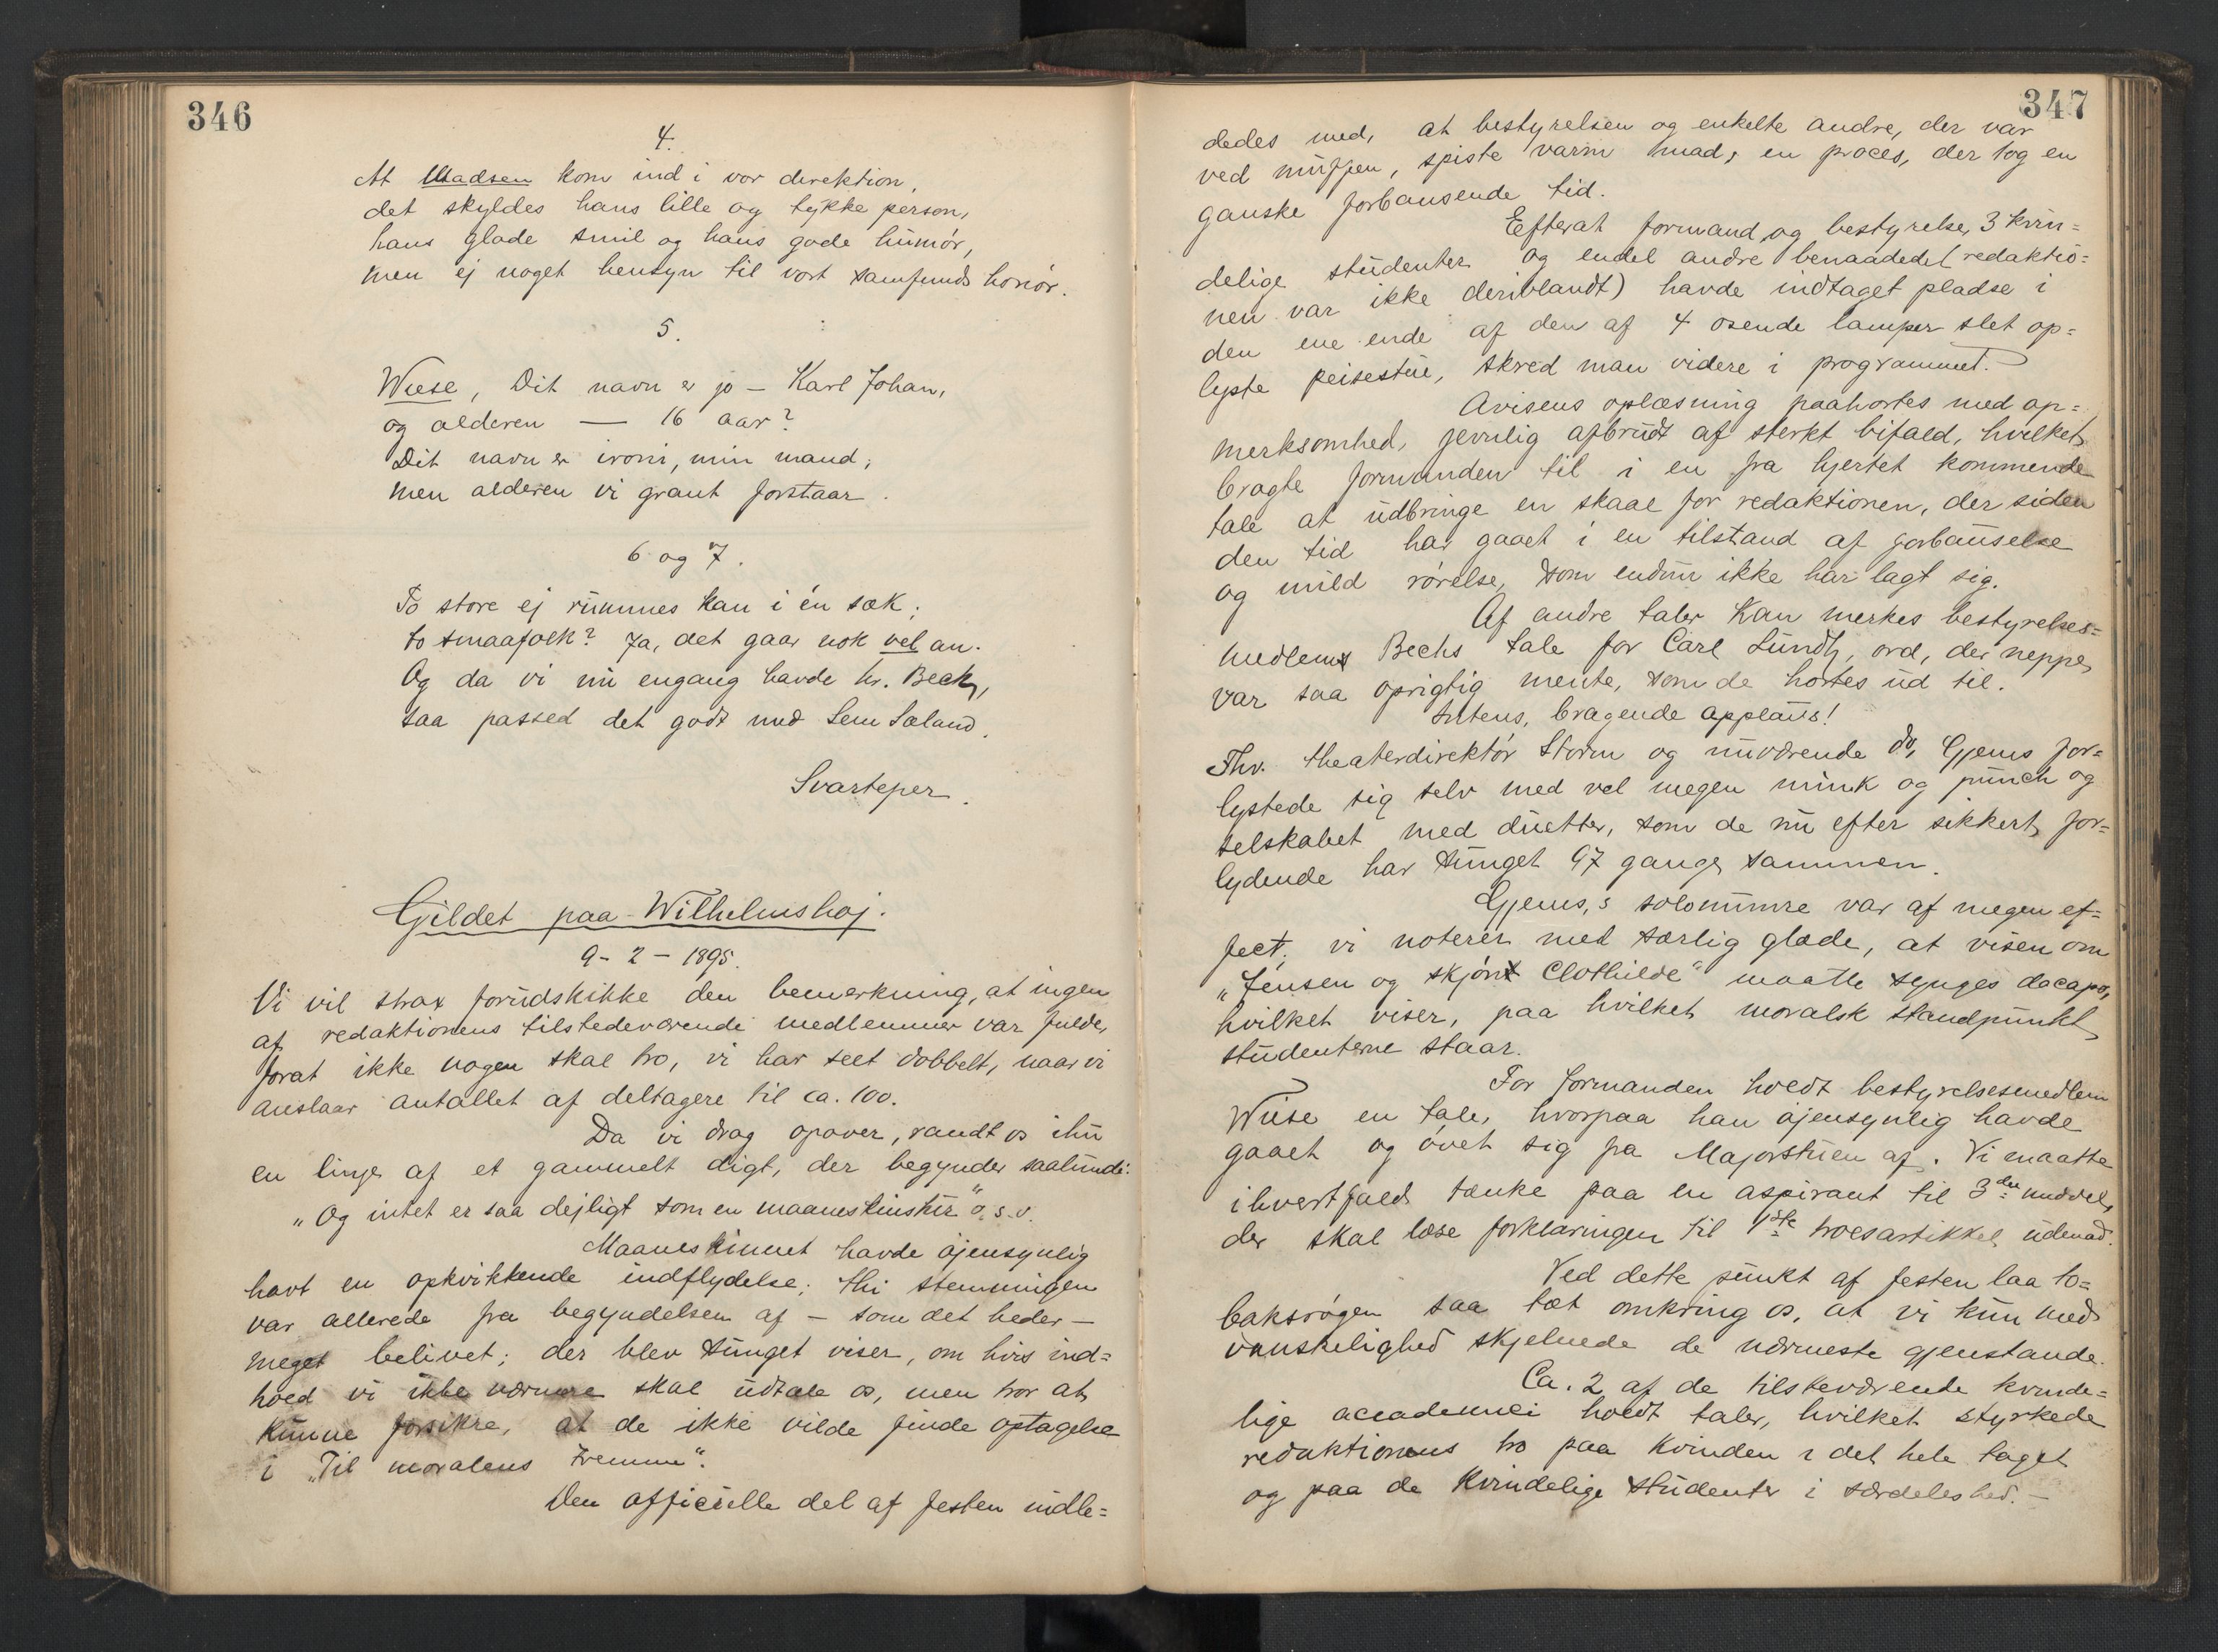 346
4.
At Madsen kom ind i vor direktion,
det skyldes hans lille og tykke person,
hans glade smil og hans gode humør,
men ej noget hensyn til vort samfunds honør.
5.
Wiese, Dit navn er jo – Karl Johan,
og alderen — 16 aar?
Dit navn er ironi, min mand,
men alderen vi grant forstaar.
6 og 7.
To store ej rummes kan i én sæk;
to smaafolk? Ja, det gaar nok vel an.
Og da vi nu engang havde hr. Beck,
saa passed det godt med Sem Sæland.
Svarteper.
Gildet paa Wilhelmshøj.
9 - 2 - 1895.
Vi vil strax forudskikke den bemerkning, at ingen
af redaktionens tilstedeværende medlemmer var fulde,
forat ikke nogen skal tro, vi har seet dobbelt, naar vi
anslaar antallet af deltagere til ca. 100.
Da vi drog opover, randt os ihu
en linje af et gammelt digt, der begynder saalunde:
„Og intet er saa dejligt som en maaneskinstur" o. s. v.
Maaneskinnet havde øjensynlig
havt en opkvikkende indflydelse; thi stemningen
var allerede fra begyndelsen af – som det heder –
meget belivet; der blev sunget viser, om hvis ind=
hold vi ikke nærmere skal udtale os, men tror at
kunne forsikre, at de ikke vilde finde optagelse
i „Til moralens fremme".
Den officielle del af festen indle=
347
dedes med, at bestyrelsen og enkelte andre, der var
ved muffen, spiste varm mad, en proces, der tog en
ganske forbausende tid.
Efterat formand og bestyrelse, 3 kvin=
delige studenter og endel andre benaadede (redaktio=
nen var ikke deriblandt) havde indtaget pladse i
den ene ende af den af 4 osende lamper slet op=
lyste peisestue, skred man videre i programmet.
Avisens oplæsning paahørtes med op=
merksomhed, jevnlig afbrudt af sterkt bifald, hvilket
bragte formanden til i en fra hjertet kommende
tale at udbringe en skaal for redaktionen, der siden
den tid har gaaet i en tilstand af forbauselse
og mild rørelse, som endnu ikke har lagt sig.
Af andre taler kan merkes bestyrelses=
medlem Bechs tale for Carl Lundh, ord, der neppe
var saa oprigtig mente, som de hørtes ud til.
Intens, bragende applaus!
Fhv. theaterdirektør Storm og nuværende do, Gjems for=
lystede sig selv med vel megen munk og punch og
selskabet med duetter, som de nu efter sikkert for=
lydende har sunget 97 gange sammen.
Gjems,s solonumre var af megen ef=
fect; vi noterer med særlig glæde, at visen om
„Jensen og skjøn Clothilde" maatte synges dacapo,
hvilket viser, paa hvilket moralsk standpunkt
studenterne staar.
For formanden holdt bestyrelsesmedlem
Wiese en tale, hvorpaa han øjensynlig havde
gaaet og øvet sig fra Majorstuen af. Vi maatte
ihvertfald tænke paa en aspirant til 3die middel,
der skal læse forklaringen til 1ste troesartikkel udenad.
Ved dette punkt af festen laa to=
baksrøgen saa tæt omkring os, at vi kun med
vanskelighed skjelnede de nærmeste gjenstande.
Ca. 2 af de tilsteværende kvinde=
lige accademici holdt taler, hvilket styrkede
redaktionens tro paa kvinden i det hele taget
og paa de kvindelige studenter i særdeleshed. –